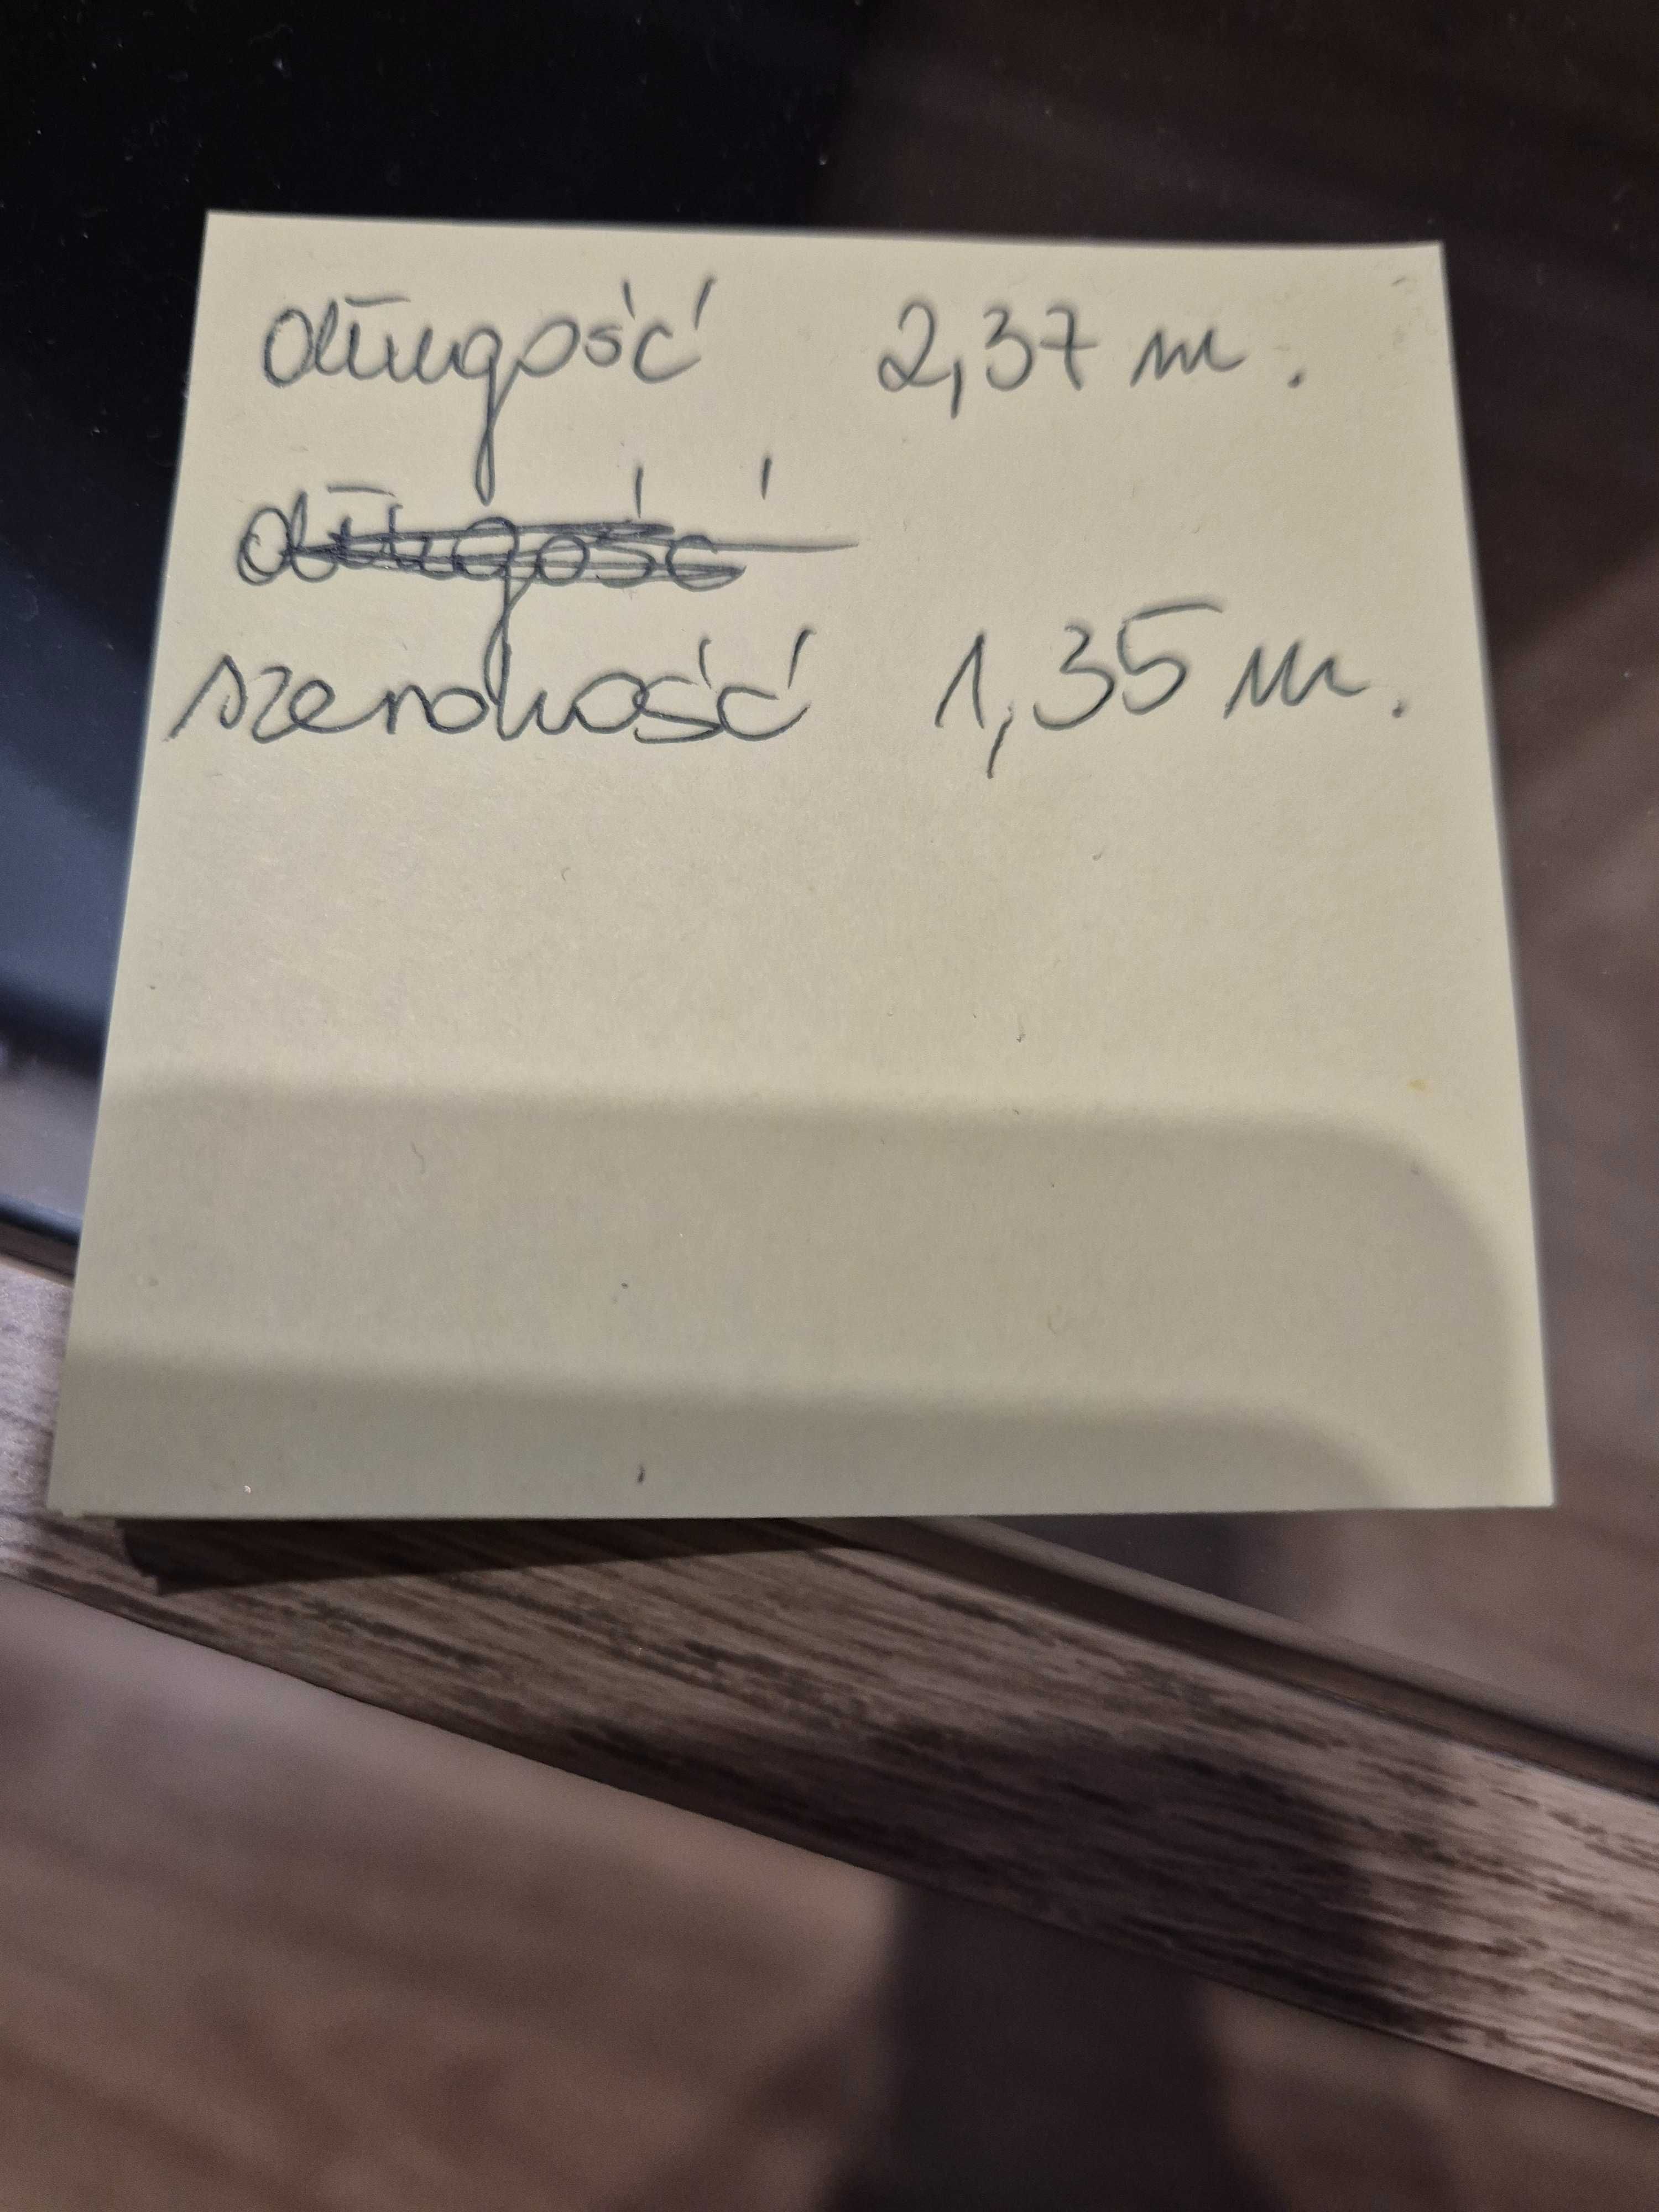 długość 2,37 m.
długość
szerokość 1,35 m.